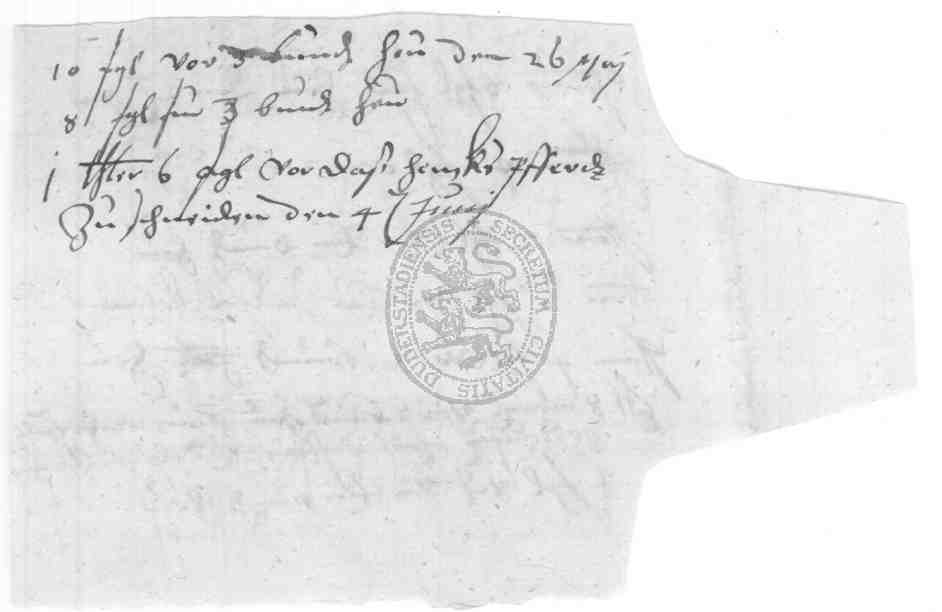 10 sgl vor 3 bundt heu den 26 Maij
8 sgl fur 3 bundt heu
j thler 6 sgl vor daß henxts pfferdt
zu schneiden den 4 Junij
SECRETUM CIVITATIS DUDERSTADIENSIS